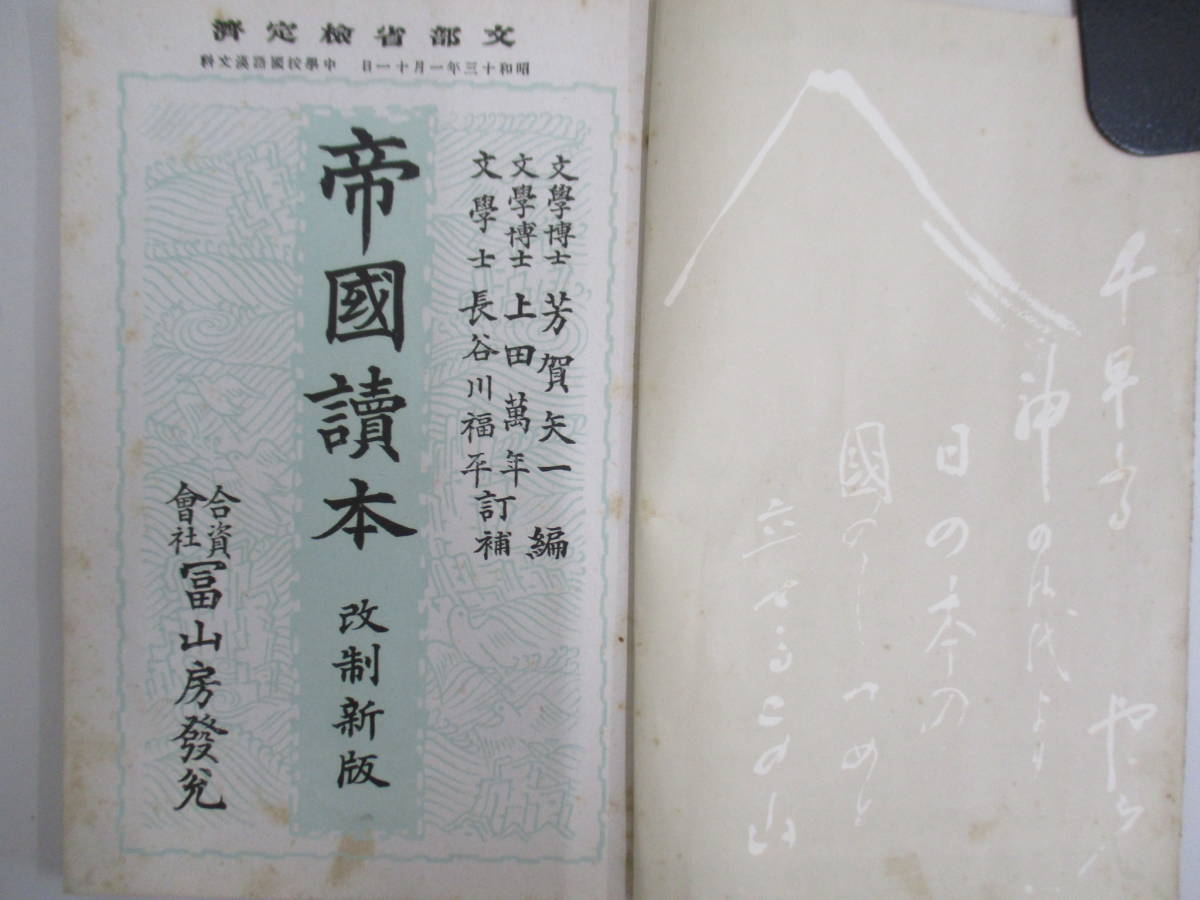 千早ふる
神のみ代より
日の本の
國のしつめと
立てるこの山
文部省檢定濟
昭和十三年一月十一日 中學校國語漢文科
文學博士 芳賀矢一 編
文學博士 上田萬年
文學士 長谷川福平 訂補
帝國讀本 改制新版
合資會社 冨山房發兌